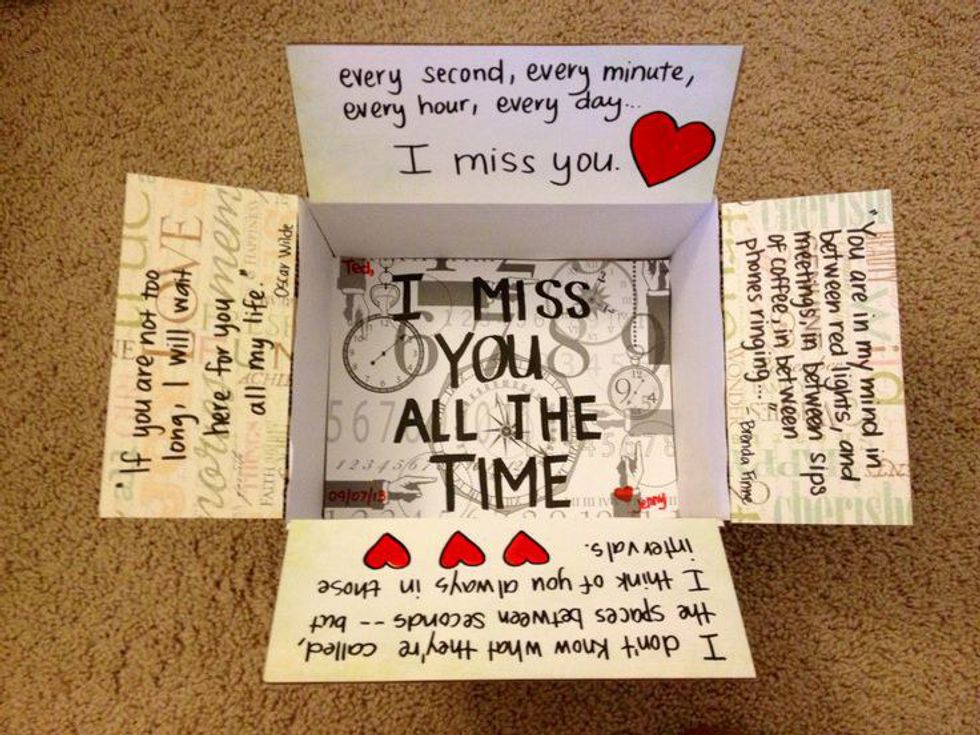 every second, every minute,
every hour, every day...
I miss you.
"If you are not too
long, I will wait
here for you
all my life."
-Oscar Wilde
Ted,
I MISS
YOU
ALL THE
TIME
09/07/13
Jenny
"You are in my mind in
between red lights, and
meetings, in between sips
of coffee, in between
phones ringing...."
- Brenda Finne
I don't know what they're called,
the spaces between seconds -- but
I think of you always in those
intervals.
6 8 9
9
5 6 7 8
1 2 3 4 5 6 7
LOVE
HAPPINESS
cherish
cherish